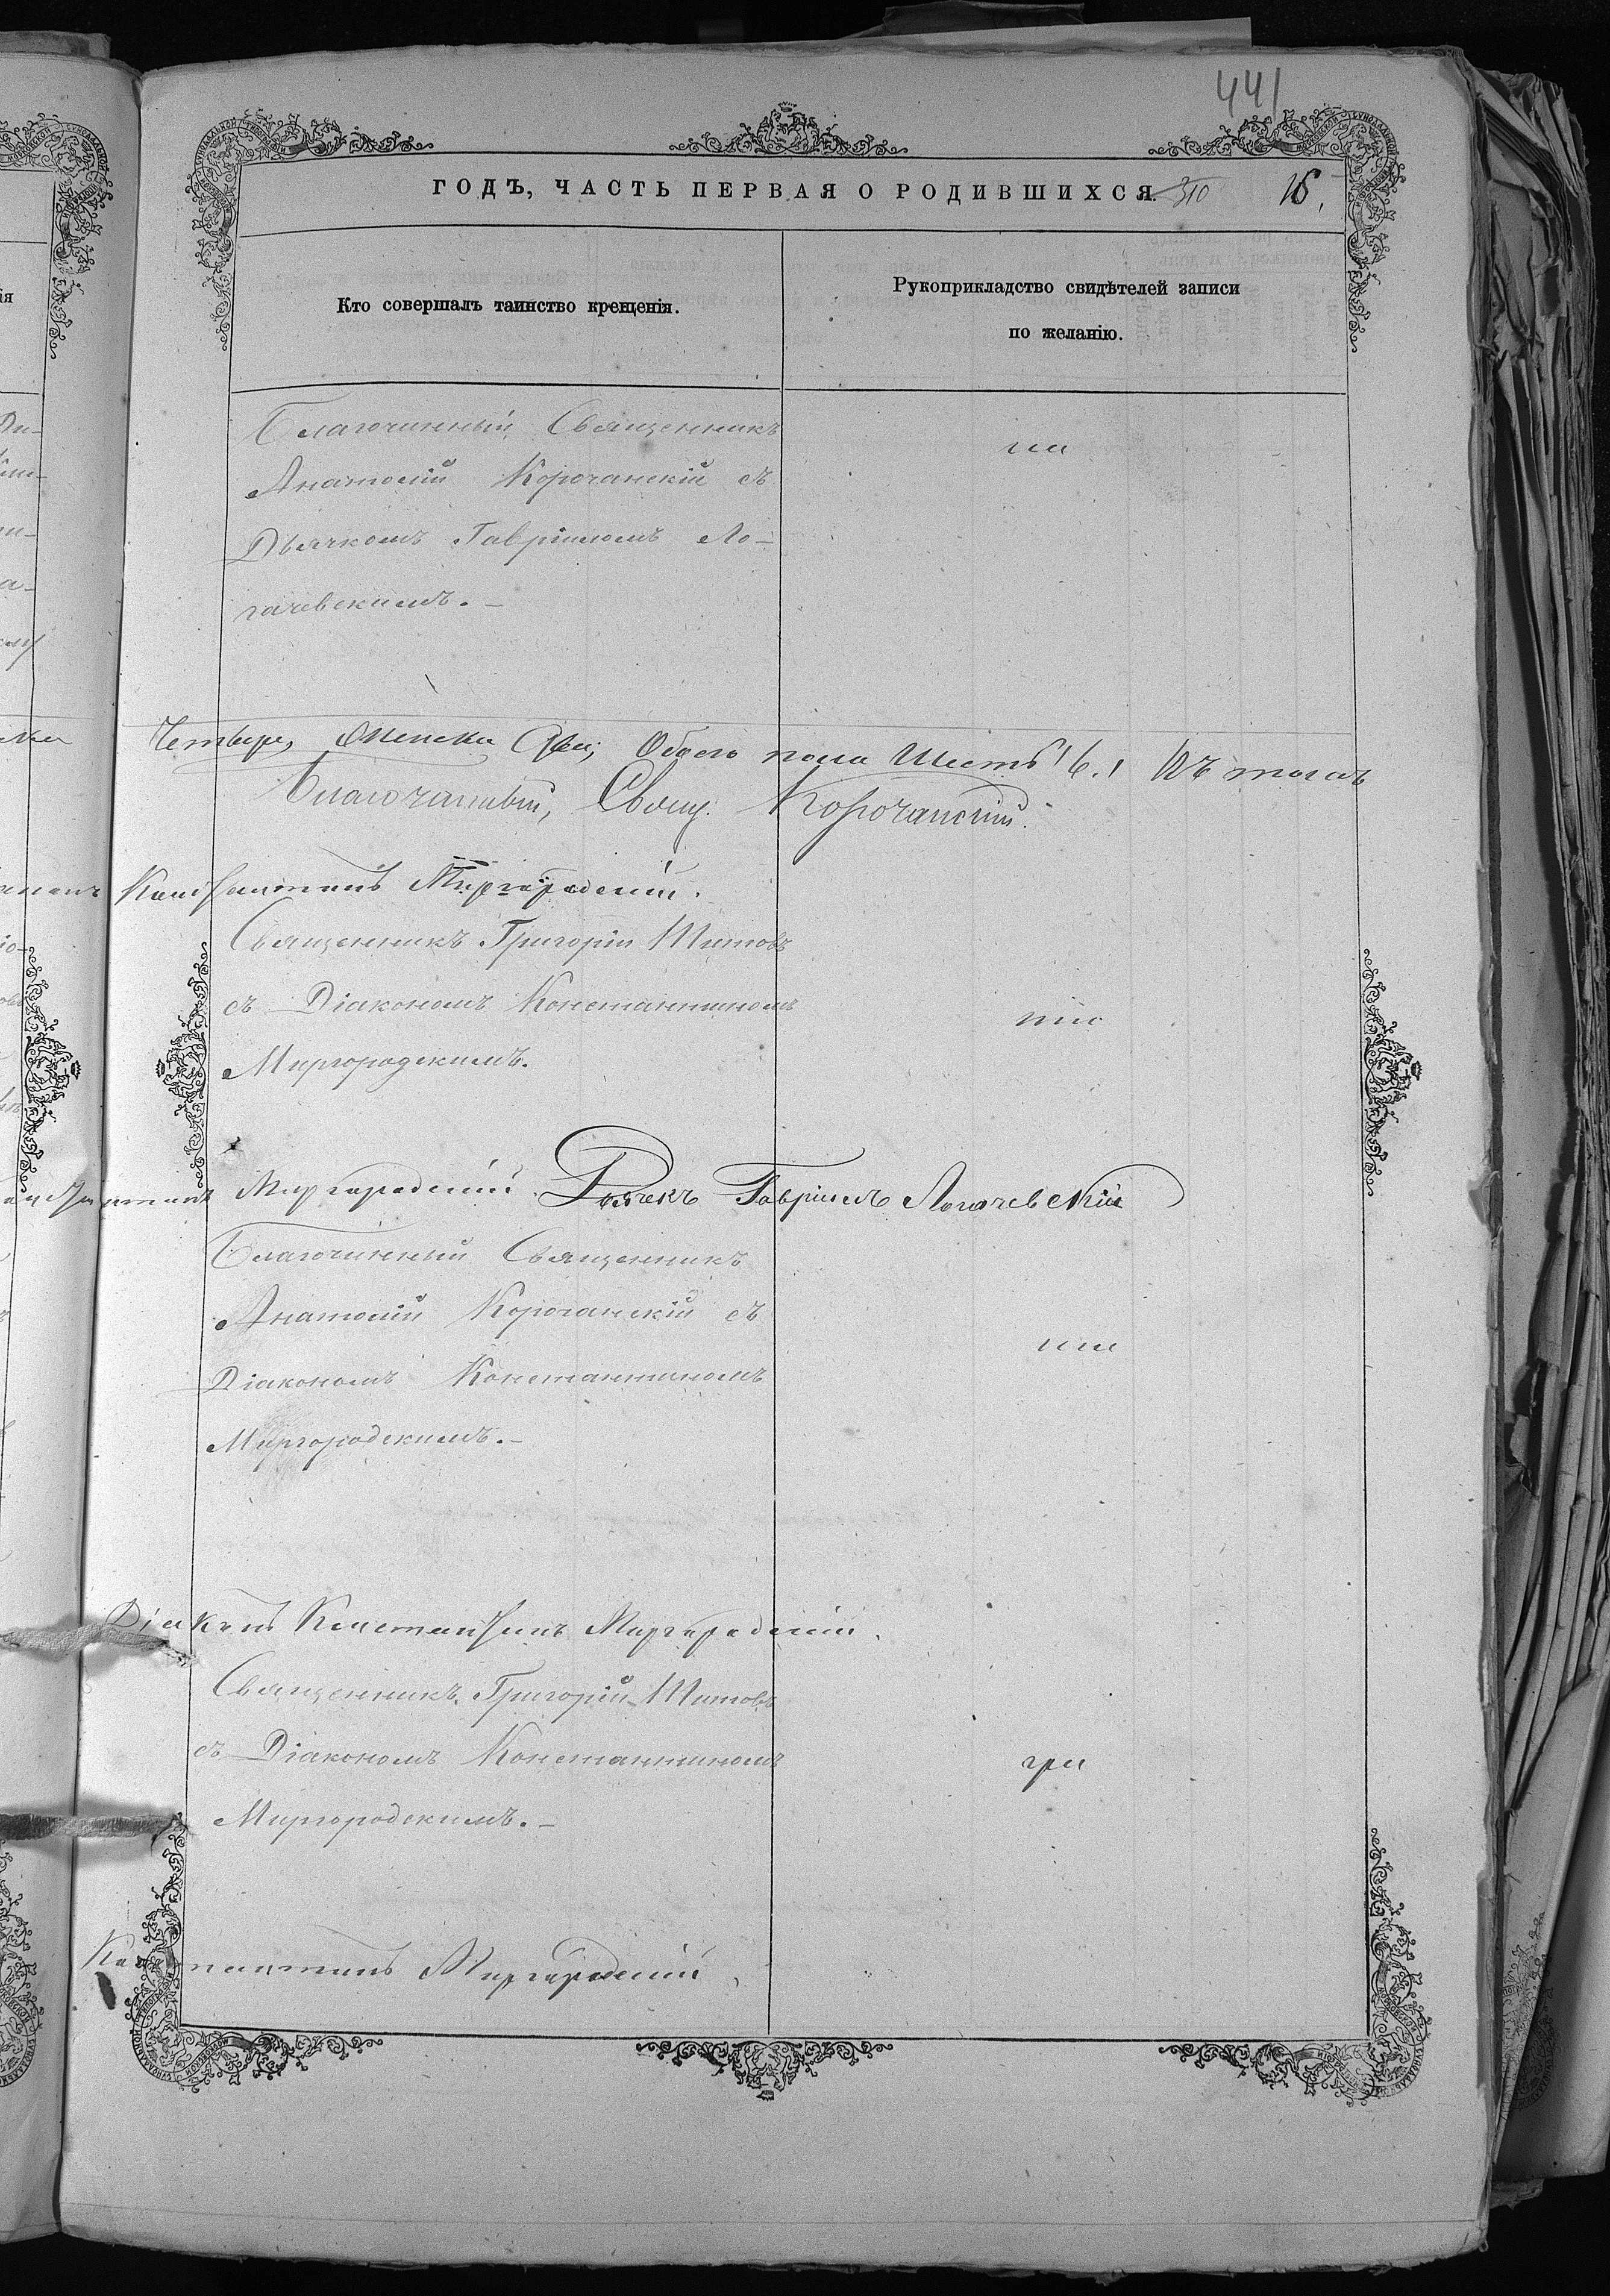 441
ГОДЪ, ЧАСТЬ ПЕРВАЯ О РОДИВШИХСЯ. 310 16.
Кто совершалъ таинство крещенія.
Рукоприкладство свидѣтелей записи
по желанію.
Благочинный Священникъ
Анатолій Корочанскій съ
Дьячкомъ Гавріиломъ Ло-
гачевскимъ.-
Четыре, Женска два; Обоего пола Шесть /6./ Въ томъ
Благочинный, Свящ. Корочанскій.
Константинъ Миргородскій.
Священникъ Григорій Титовъ
съ Діакономъ Константиномъ
Миргородскимъ.
Миргородскій. Дьячекъ Гавріилъ Логачевскій
Благочинный Священникъ
Анатолій Корочанскій съ
Діакономъ Константиномъ
Миргородскимъ.-
Діаконъ Константинъ Миргородскій.
Священникъ Григорій Титовъ
съ Діакономъ Константиномъ
Миргородскимъ.-
Константинъ Миргородскій